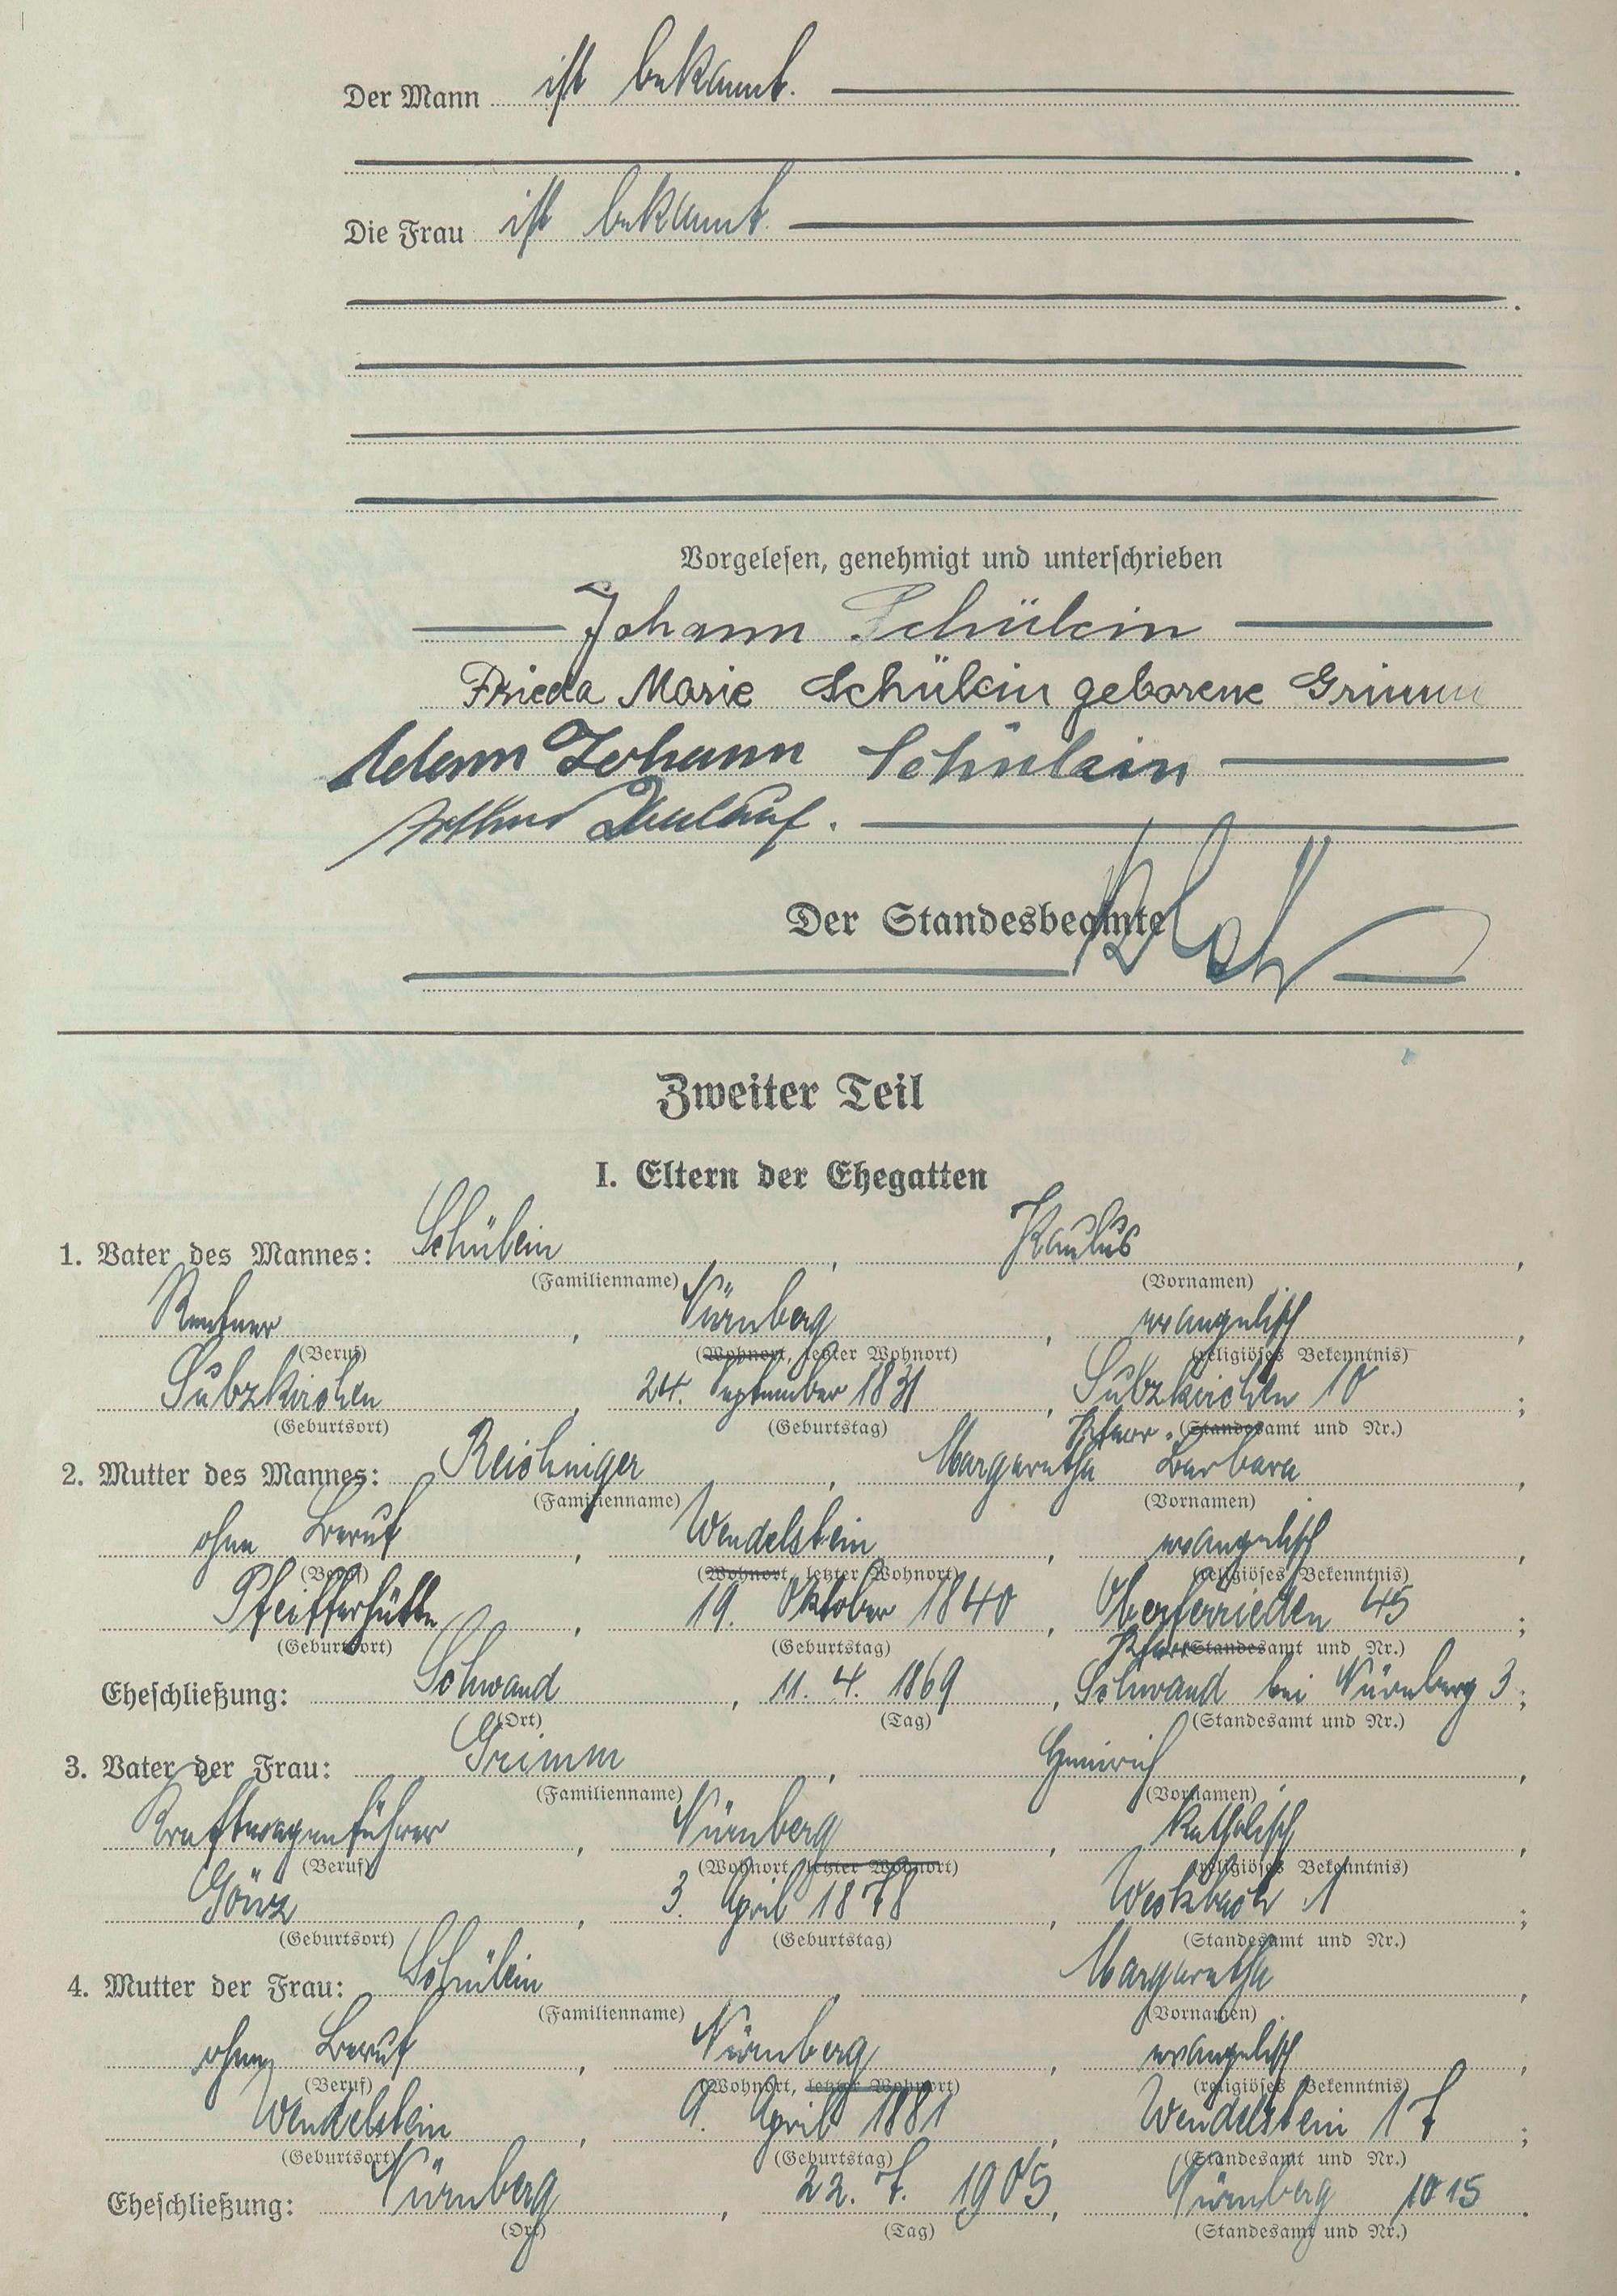 Der Mann ist bekannt.
Die Frau ist bekannt
Vorgelesen, genehmigt und unterschrieben
Johann Schülein
Frieda Marie Schülein geborene Grimm
Adam Johann Schülein
Der Standesbeamte
Zweiter Teil
I. Eltern der Ehegatten
1. Vater des Mannes: Schülein, Paulus,
(Familienname) (Vornamen)
Rentner, Nürnberg, evangelisch,
(Beruf) (Wohnort, letzter Wohnort) (religiöses Bekenntnis)
Sulzkirchen, 24. September 1831, Sulzkirchen 10;
(Geburtsort) (Geburtstag) Pfarr- (Standesamt und Nr.)
2. Mutter des Mannes: Reichniger, Margaretha Barbara,
(Familienname) (Vornamen)
ohne Beruf, Wendelstein, evangelisch,
(Beruf) (Wohnort, letzter Wohnort) (religiöses Bekenntnis)
Pfeifferhütte, 19. Oktober 1840, Oberferrieden 45;
(Geburtsort) (Geburtstag) Pfarr (Standesamt und Nr.)
Eheschließung: Schwand, 11. 4. 1869, Schwand bei Nürnberg 3;
(Ort) (Tag) (Standesamt und Nr.)
3. Vater der Frau: Grimm, Heinrich,
(Familienname) (Vornamen)
Kraftwagenführer, Nürnberg, katholisch,
(Beruf) (Wohnort, letzter Wohnort) (religiöses Bekenntnis)
3. April 1878, 1;
(Geburtsort) (Geburtstag) (Standesamt und Nr.)
4. Mutter der Frau: Schülein, Margaretha,
(Familienname) (Vornamen)
ohne Beruf, Nürnberg, evangelisch,
(Beruf) (Wohnort, letzter Wohnort) (religiöses Bekenntnis)
Wendelstein, 9. April 1881, Wendelstein 17;
(Geburtsort) (Geburtstag) (Standesamt und Nr.)
Eheschließung: Nürnberg, 22. 7. 1905, Nürnberg 1015.
(Ort) (Tag) (Standesamt und Nr.)